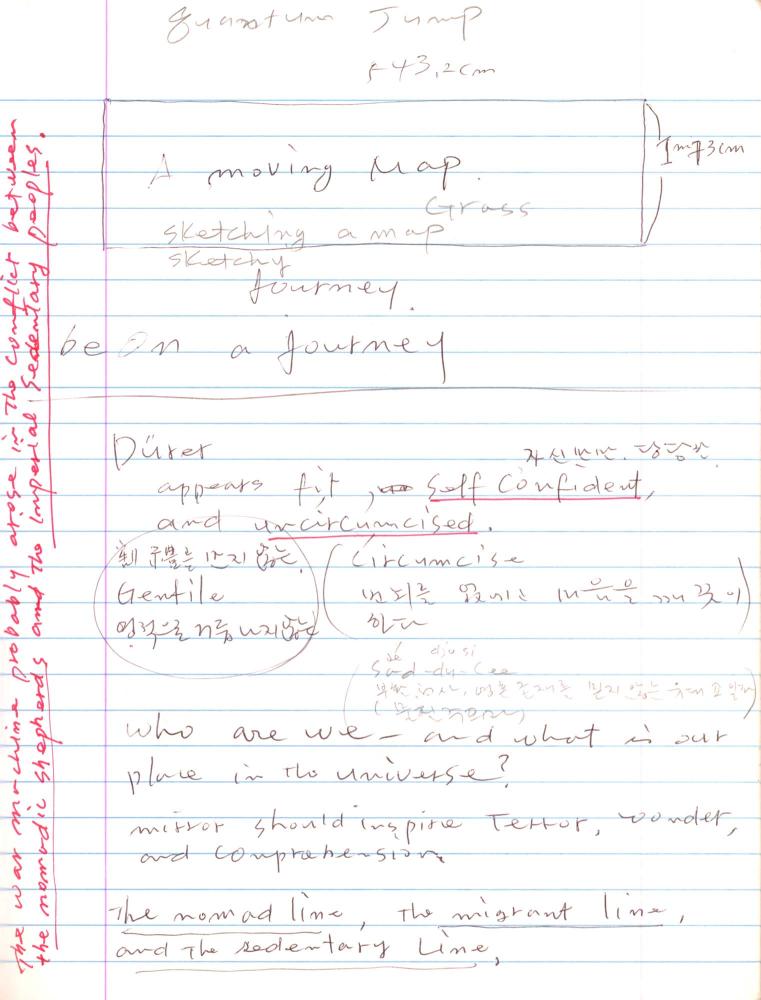 Quantum Jump
43,2cm
A moving Map.
1m73cm
Grass
sketching a map
sketchy
Journey.
be On a Journey
Dürer
자신만만. 당당한.
appears fit, Self Confident,
and uncircumcised.
할례를 받지 않은
Circumcise
Gentile
번뇌를 없애는 마음을 깨끗이
영적으로 거듭나지 않은
한다
sé djusi
Sad-du-Cee
부활, 천사, 영혼 존재를 믿지 않는 유대교
who are we - and what is our
place in the universe?
mirror should inspire Terror, wonder,
and Comprehension.
The nomad line, the migrant line,
and The sedentary Line,
The war machine probably arose in The Conflict between
the nomadic shepherds and the Imperial Sedentary peoples.